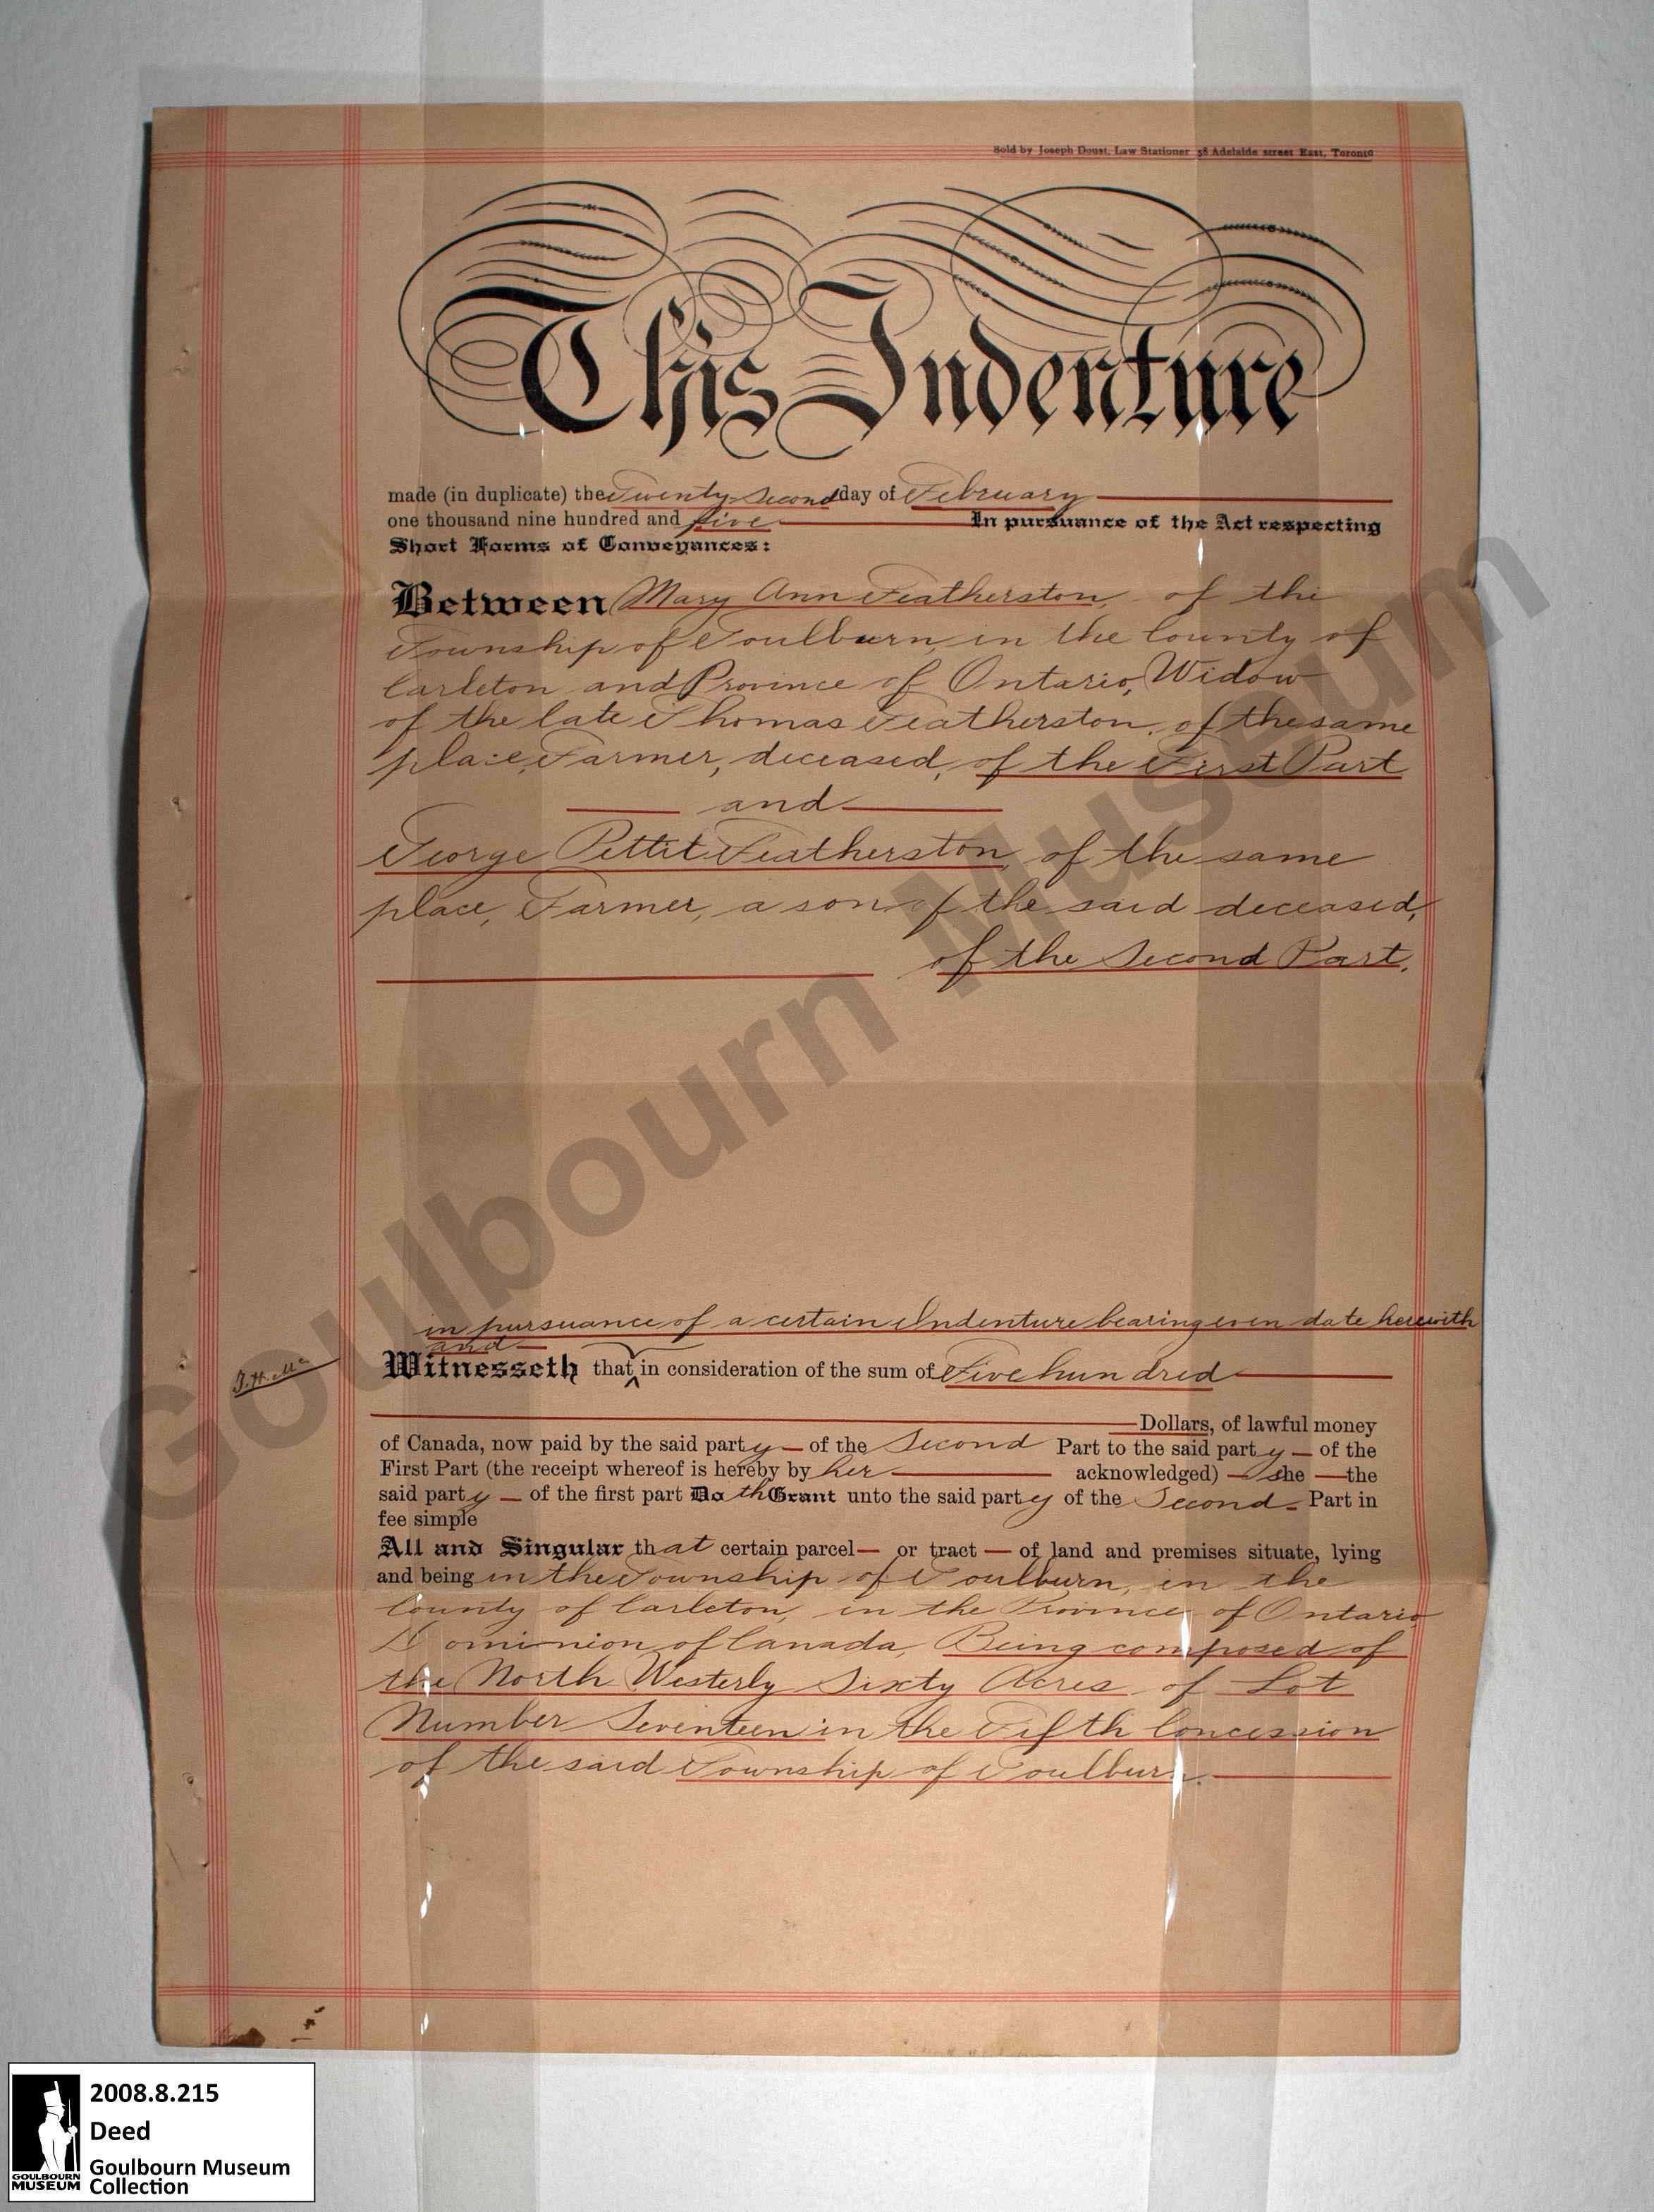 Sold by Joseph Doust, Law Stationer 58 Adelaide street East, Toronto
This Indenture
made (in duplicate) the Twenty Second day of February
one thousand nine hundred and five In pursuance of the Act respecting
Short Forms of Conveyances:
Between Mary Ann Featherston, of the
Township of Goulburn, in the County of
Carleton and Province of Ontario, Widow
of the late Thomas Featherston, of the same
place, Farmer, deceased, of the First Part
and
George Pettit Featherston, of the same
place, Farmer, a son of the said deceased,
of the Second Part.
in pursuance of a certain Indenture bearing even date herewith
and
Witnesseth that in consideration of the sum of Five hundred
J.H. Mc
Dollars, of lawful money
of Canada, now paid by the said party of the Second Part to the said party of the
First Part (the receipt whereof is hereby by her acknowledged) she the
said party of the first part Doth Grant unto the said party of the Second Part in
fee simple
All and Singular that certain parcel or tract of land and premises situate, lying
and being in the Township of Goulburn, in the
County of Carleton, in the Province of Ontario,
Dominion of Canada, Being composed of
the North Westerly Sixty Acres of Lot
Number Seventeen in the Fifth Concession
of the said Township of Goulburn.
Goulbourn Museum
2008.8.215
Deed
Goulbourn Museum
Collection
GOULBOURN
MUSEUM